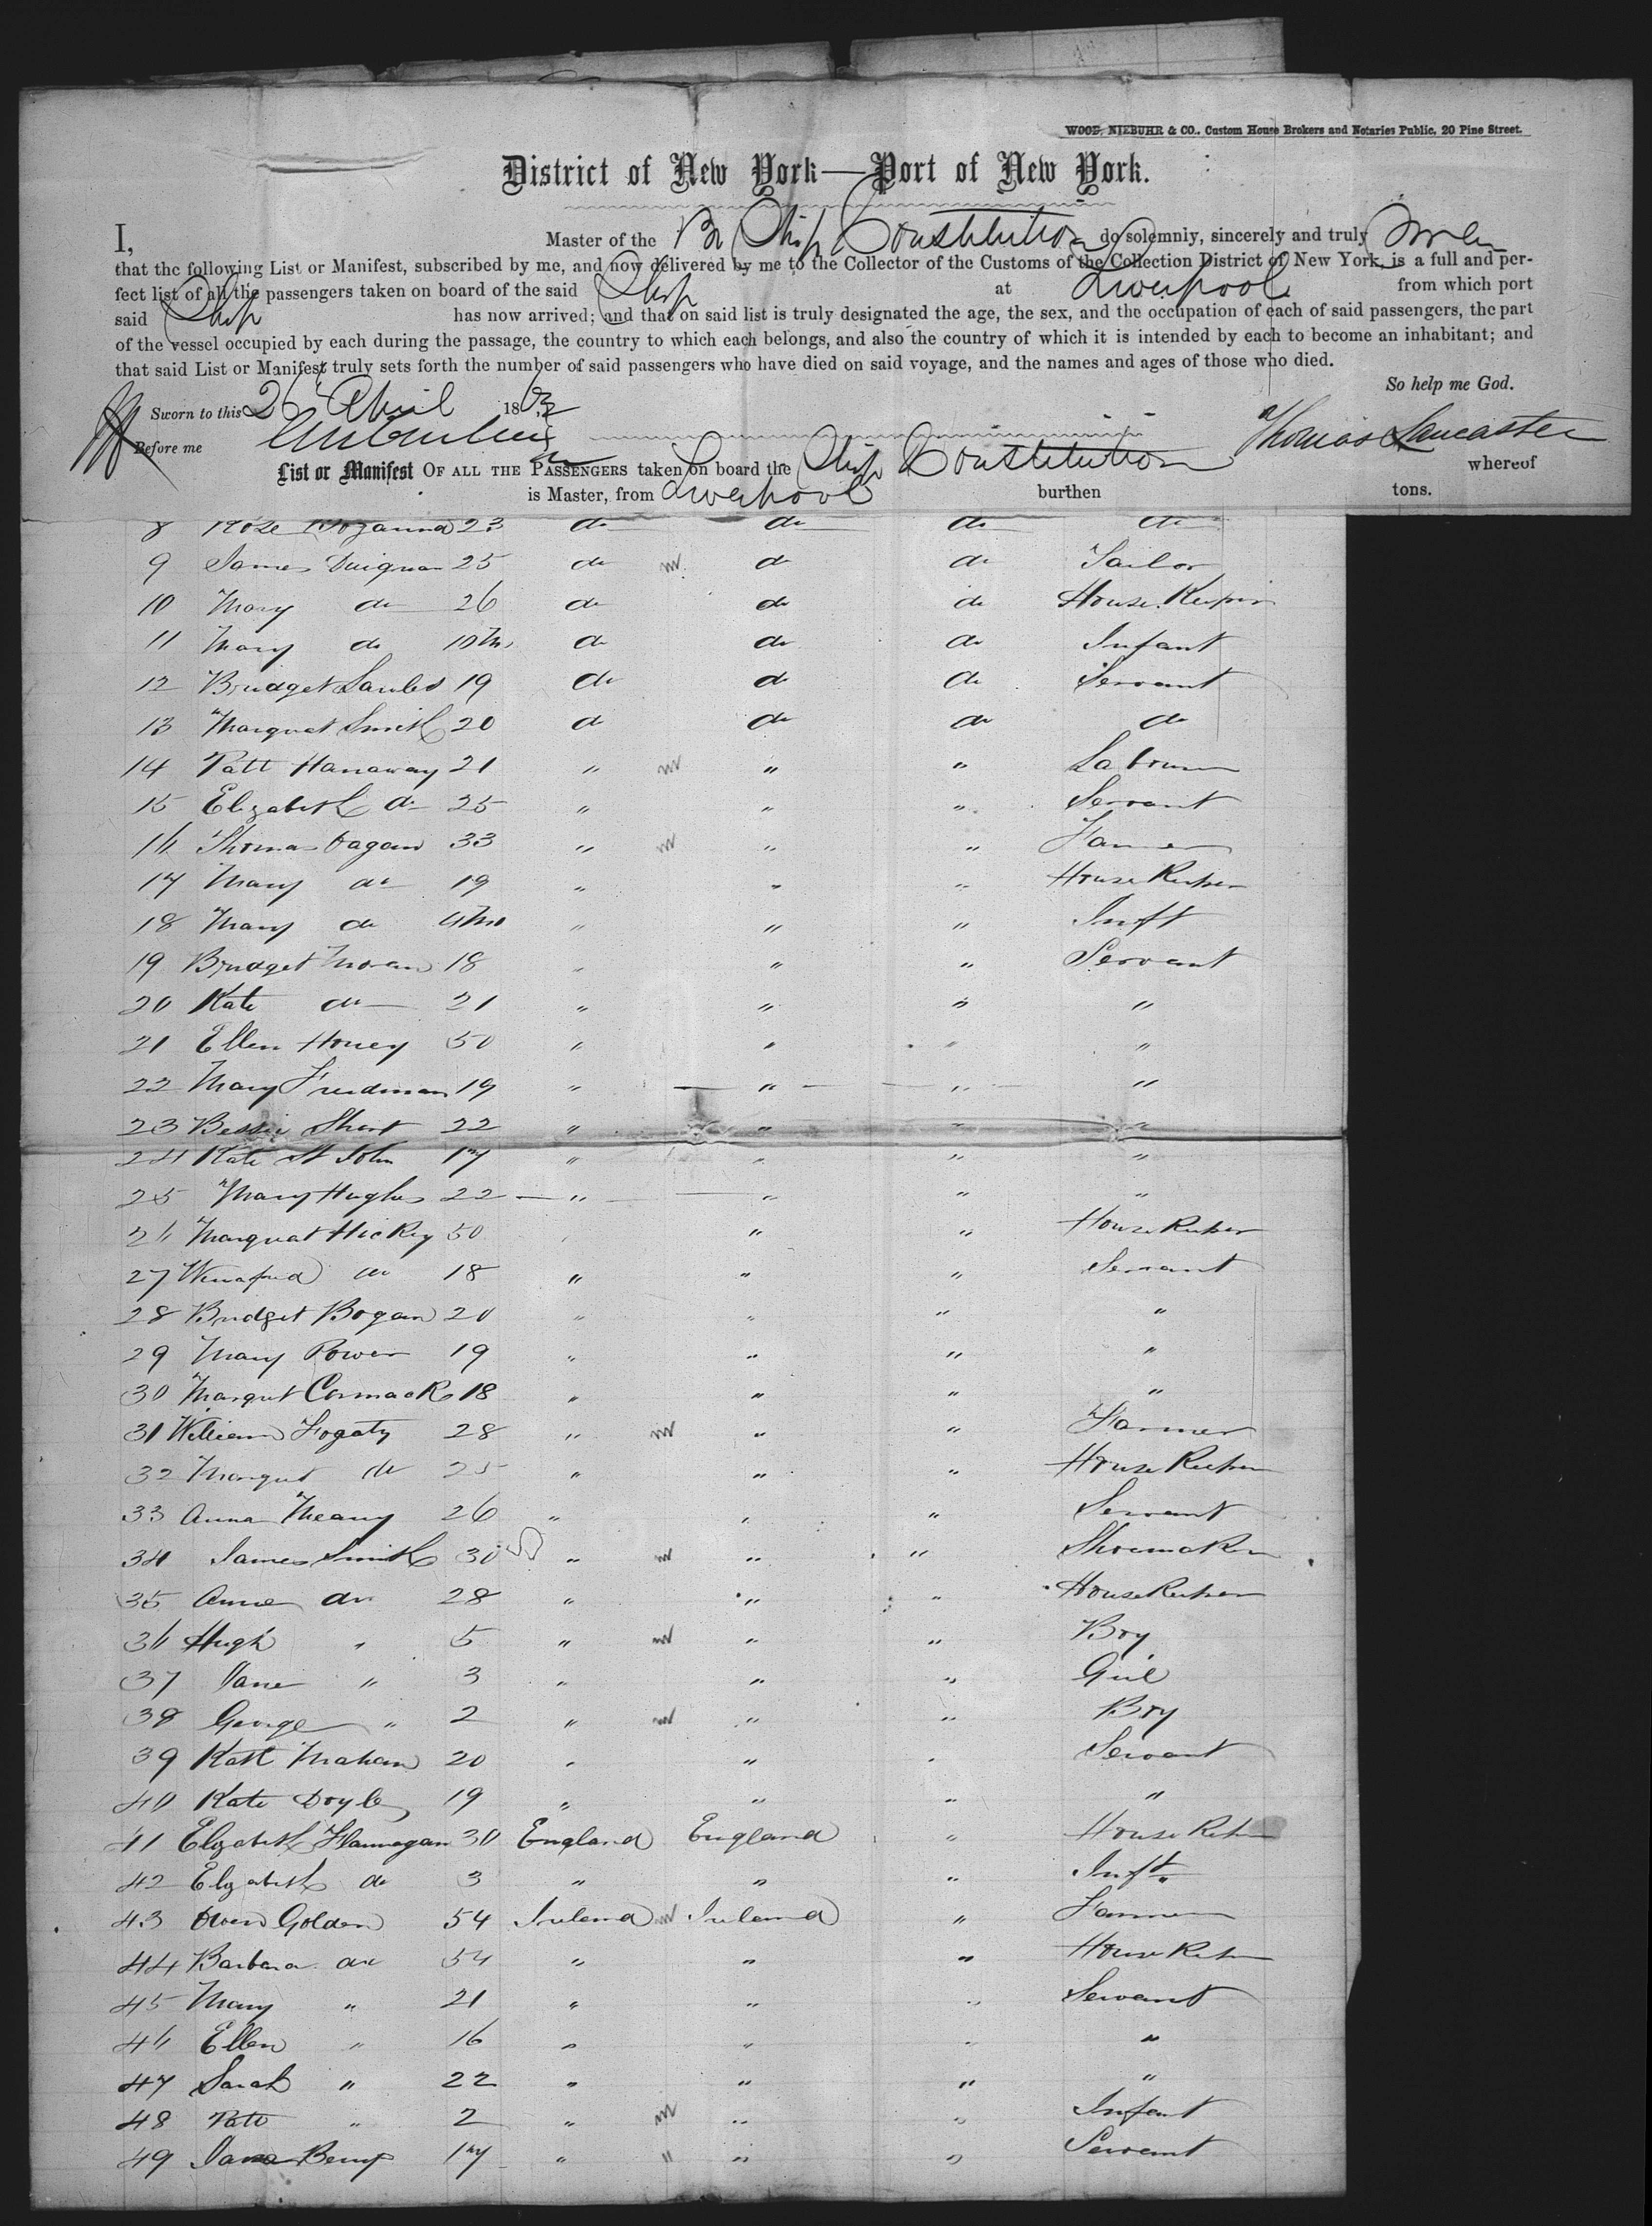 WOOD, NIEBUHR & CO., Custom House Brokers and Notaries Public, 20 Pine Street.
District of New York—Port of New York.
I, Master of the Br Ship Constitution do solemnly, sincerely and truly
that the following List or Manifest, subscribed by me, and now delivered by me to the Collector of the Customs of the Collection District of New York, is a full and per-
fect list of all the passengers taken on board of the said Ship at Liverpool from which port
said Ship has now arrived; and that on said list is truly designated the age, the sex, and the occupation of each of said passengers, the part
of the vessel occupied by each during the passage, the country to which each belongs, and also the country of which it is intended by each to become an inhabitant; and
that said List or Manifest truly sets forth the number of said passengers who have died on said voyage, and the names and ages of those who died.
So help me God.
Sworn to this 26 April 1863
Thomas Lancaster
Before me
List or Manifest OF ALL THE PASSENGERS taken on board the Ship Constitution whereof
is Master, from Liverpool burthen tons.
8 Rose 23 do do do do
9 James Duignan 25 do m do do Sailor
10 Mary do 26 do do do House Keeper
11 Mary do 10 Ms do do do Infant
12 Bridget 19 do do do Servant
13 Margret Smith 20 do do do do
14 Patt Hanaway 21 " m " " Labourer
15 Elizabeth do 25 " " " Servant
16 Thomas Fagan 33 " m " " Farmer
17 Mary do 19 " " " House Keeper
18 Mary do Mo " " " Inft
19 Bridget Moran 18 " " " Servant
20 Kate do 21 " " " "
21 Ellen Honey 50 " " " "
22 Mary Friedman 19 " " " "
23 Bessie Short 22 " " " "
24 Kate St John 17 " " " "
25 Mary Hughes 22 " " " "
26 Margret Hickey 50 " " " House Keeper
27 Winafred do 18 " " " Servant
28 Bridget Bogan 20 " " " "
29 Mary Power 19 " " " "
30 Margret Cormack 18 " " " "
31 William Fogaty 28 " m " " Farmer
32 Margret do 25 " " " House Keeper
33 Anna Meany 26 " " " Servant
34 James Smith 30 " m " " Shoemaker
35 Anne do 28 " " " House Keeper
36 Hugh " 5 " m " " Boy
37 Jane " 3 " " " Girl
38 George " 2 " m " " Boy
39 Kate Mahan 20 " " " Servant
40 Kate Doyle 19 " " " "
41 Elizabeth Flannagan 30 England England " House Keeper
42 Elizabeth do 3 " " " Inft
43 Owen Golden 54 Ireland m Ireland " Farmer
44 Barbara do 54 " " " House Keeper
45 Mary " 21 " " " Servant
46 Ellen " 16 " " " "
47 Sarah " 22 " " " "
48 Patt " 2 " m " " Infant
49 Berry 17 " " " " Servant